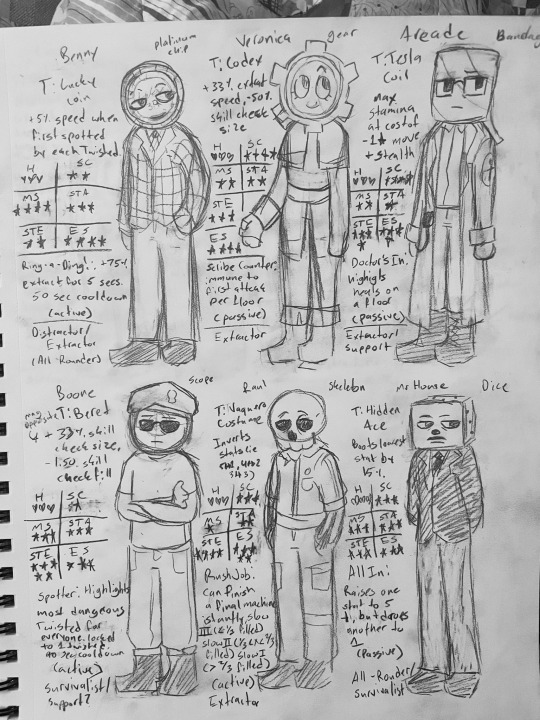 Benny
platinum
chip
T: Lucky
coin
+5% speed when
first spotted
by each Twisted
H
SC
MS
STA
STE
ES
Ring-a-Ding!: +75%
extract for 5 secs.
50 sec cooldown
(active)
Distractor/
Extractor
(All-Rounders)
Veronica
gear
T: Codex
+33% extract
speed, -50%
skill check
size
H
SC
MS
STA
STE
ES
Scribe Counter:
immune to
first attack
per floor
(passive)
Extractor
Arcade
Bandag
T: Tesla
Coil
max
stamina
at cost of
-1 move
+stealth
H
SC
MS
STA
STE
ES
Doctor's In:
heals on
a floor
(passive)
Extractor/
support
Boone
scope
T: Beret
+33% skill
check size,
-1.50 skill
check fill
H
SC
MS
STA
STE
ES
Spotter: Highlights
most dangerous
Twisted for
everyone. locked
to 1 twisted.
sec cooldown
(active)
survivalist/
support?
Raul
skeleton
T: Vaquero
Costume
Inverts
stats
H
SC
MS
STA
STE
ES
Rush Job:
can finish
a final machine
instantly, slow
III (< 1/3 filled)
slow II (1/3 < x < 2/3
filled) slow I
(> 2/3 filled)
(active)
Extractor
Mr House
Dice
T: Hidden
Ace
Boosts lowest
stat by
15%
H
SC
MS
STA
STE
ES
All In:
Raises one
stat to 5
but drops
another to
1
(passive)
All-Rounder/
Survivalist